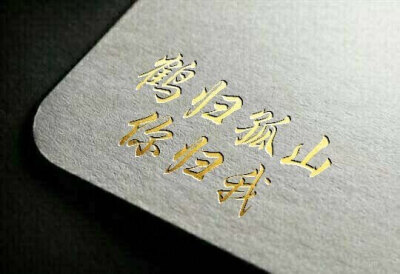 鹤归孤山
你归我